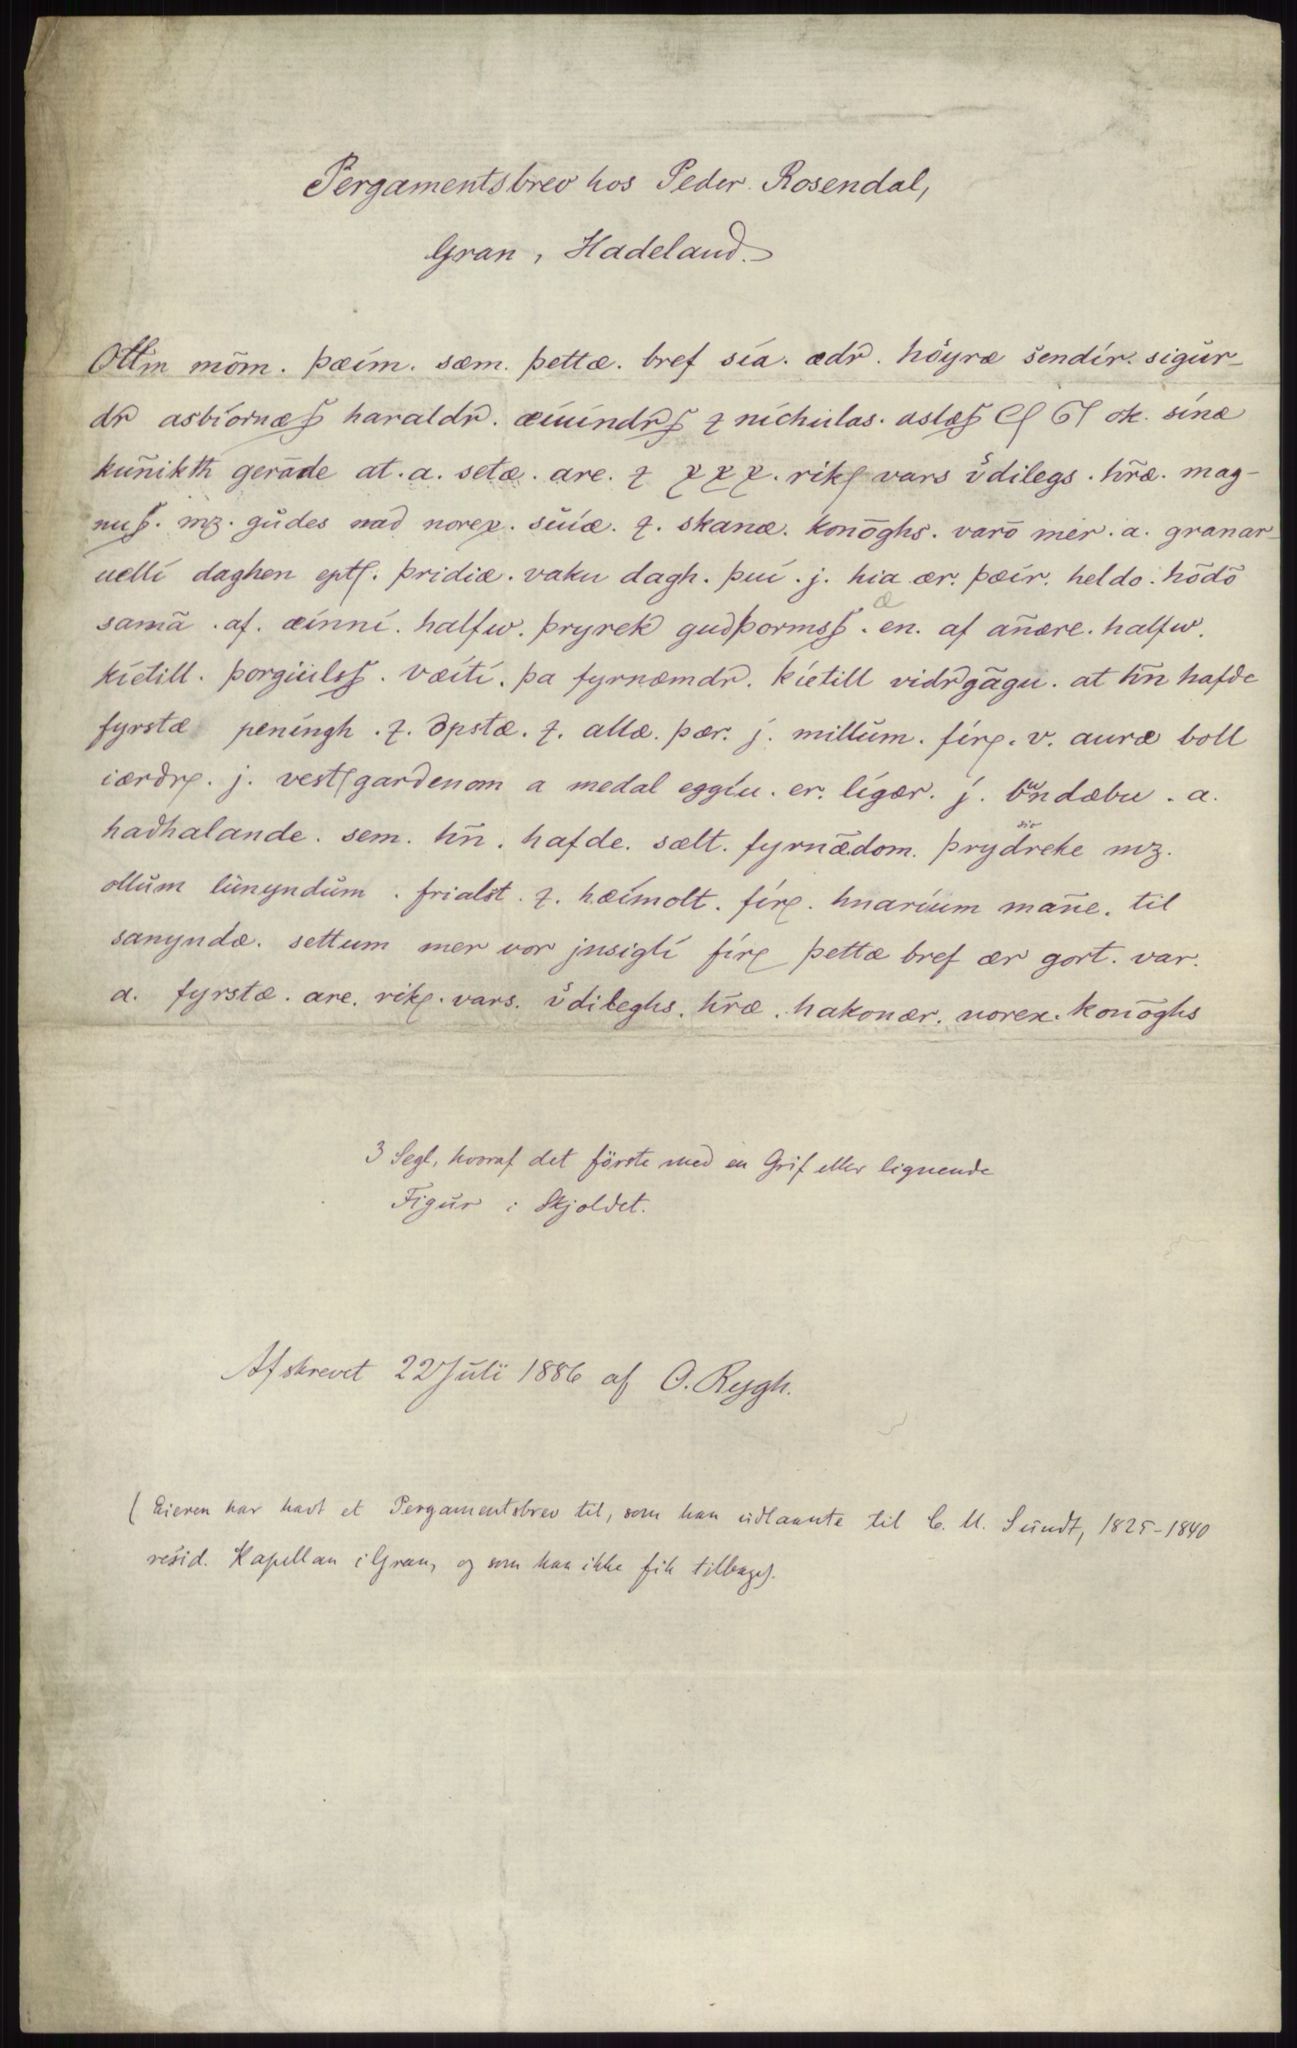 Pergamentsbrev hos Peder Rosendal,
Gran, Hadeland.
Ollm mōm. þæím. sæm. þettæ. bref sía. ædr. höyræ sendír. sigur-
dr asbíornæſ haraldr. æíuíndrſ ⁊ nichulas. aslæſ ok. sínæ
kūnikth gerāde at. a. setæ. are. ⁊ xxx. rik vars v̊dilegs. hr̄æ. mag-
nuſ. mz. gudes nad norex. suíæ. ⁊. skanæ. konōghs. varō mer. a. granar-
uellí daghen ept. þridiæ. vaku dagh. þuí. j. hia ær. þæír. heldo. hōdō
samā. af. æínní. halfw. þryrek gudþormsſ. en. af an̄ære. halfw.
kíetill. þorgíulsſ. væítí. þa fyrnæmdr. kíetill vidrgāgu. at hn̄ hafde
fyrstæ peníngh. ⁊. øpstæ. ⁊. allæ. þær. j. millum. fír. v. auræ boll
iærdr. j. vestgardenom a medal eggíu. er. lígær. j. bundæbu. a.
hadhalande. sem. hn̄. hafde. sælt. fyrnǣdom. þrydreke mz.
ollum lunyndum. frialst. ⁊. hæímolt. fír. huaríum man̄e. til
sanyndæ. settum mer vor jnsiglí fír þettæ bref ær gort. var.
a. fyrstæ. are. rik. vars. v̊dileghs. hr̄æ. hakonær. norex. konōghs
3 Segl, hvoraf det förste med en Grif eller lignende
Figur i Skjoldet.
Afskrevet 22 Juli 1886 af O. Rygh.
(Eieren har havt et Pergamentsbrev til, som han udlaante til C. M. Sundt, 1825-1840
resid. Kapellan i Gran, og som han ikke fik tilbage).